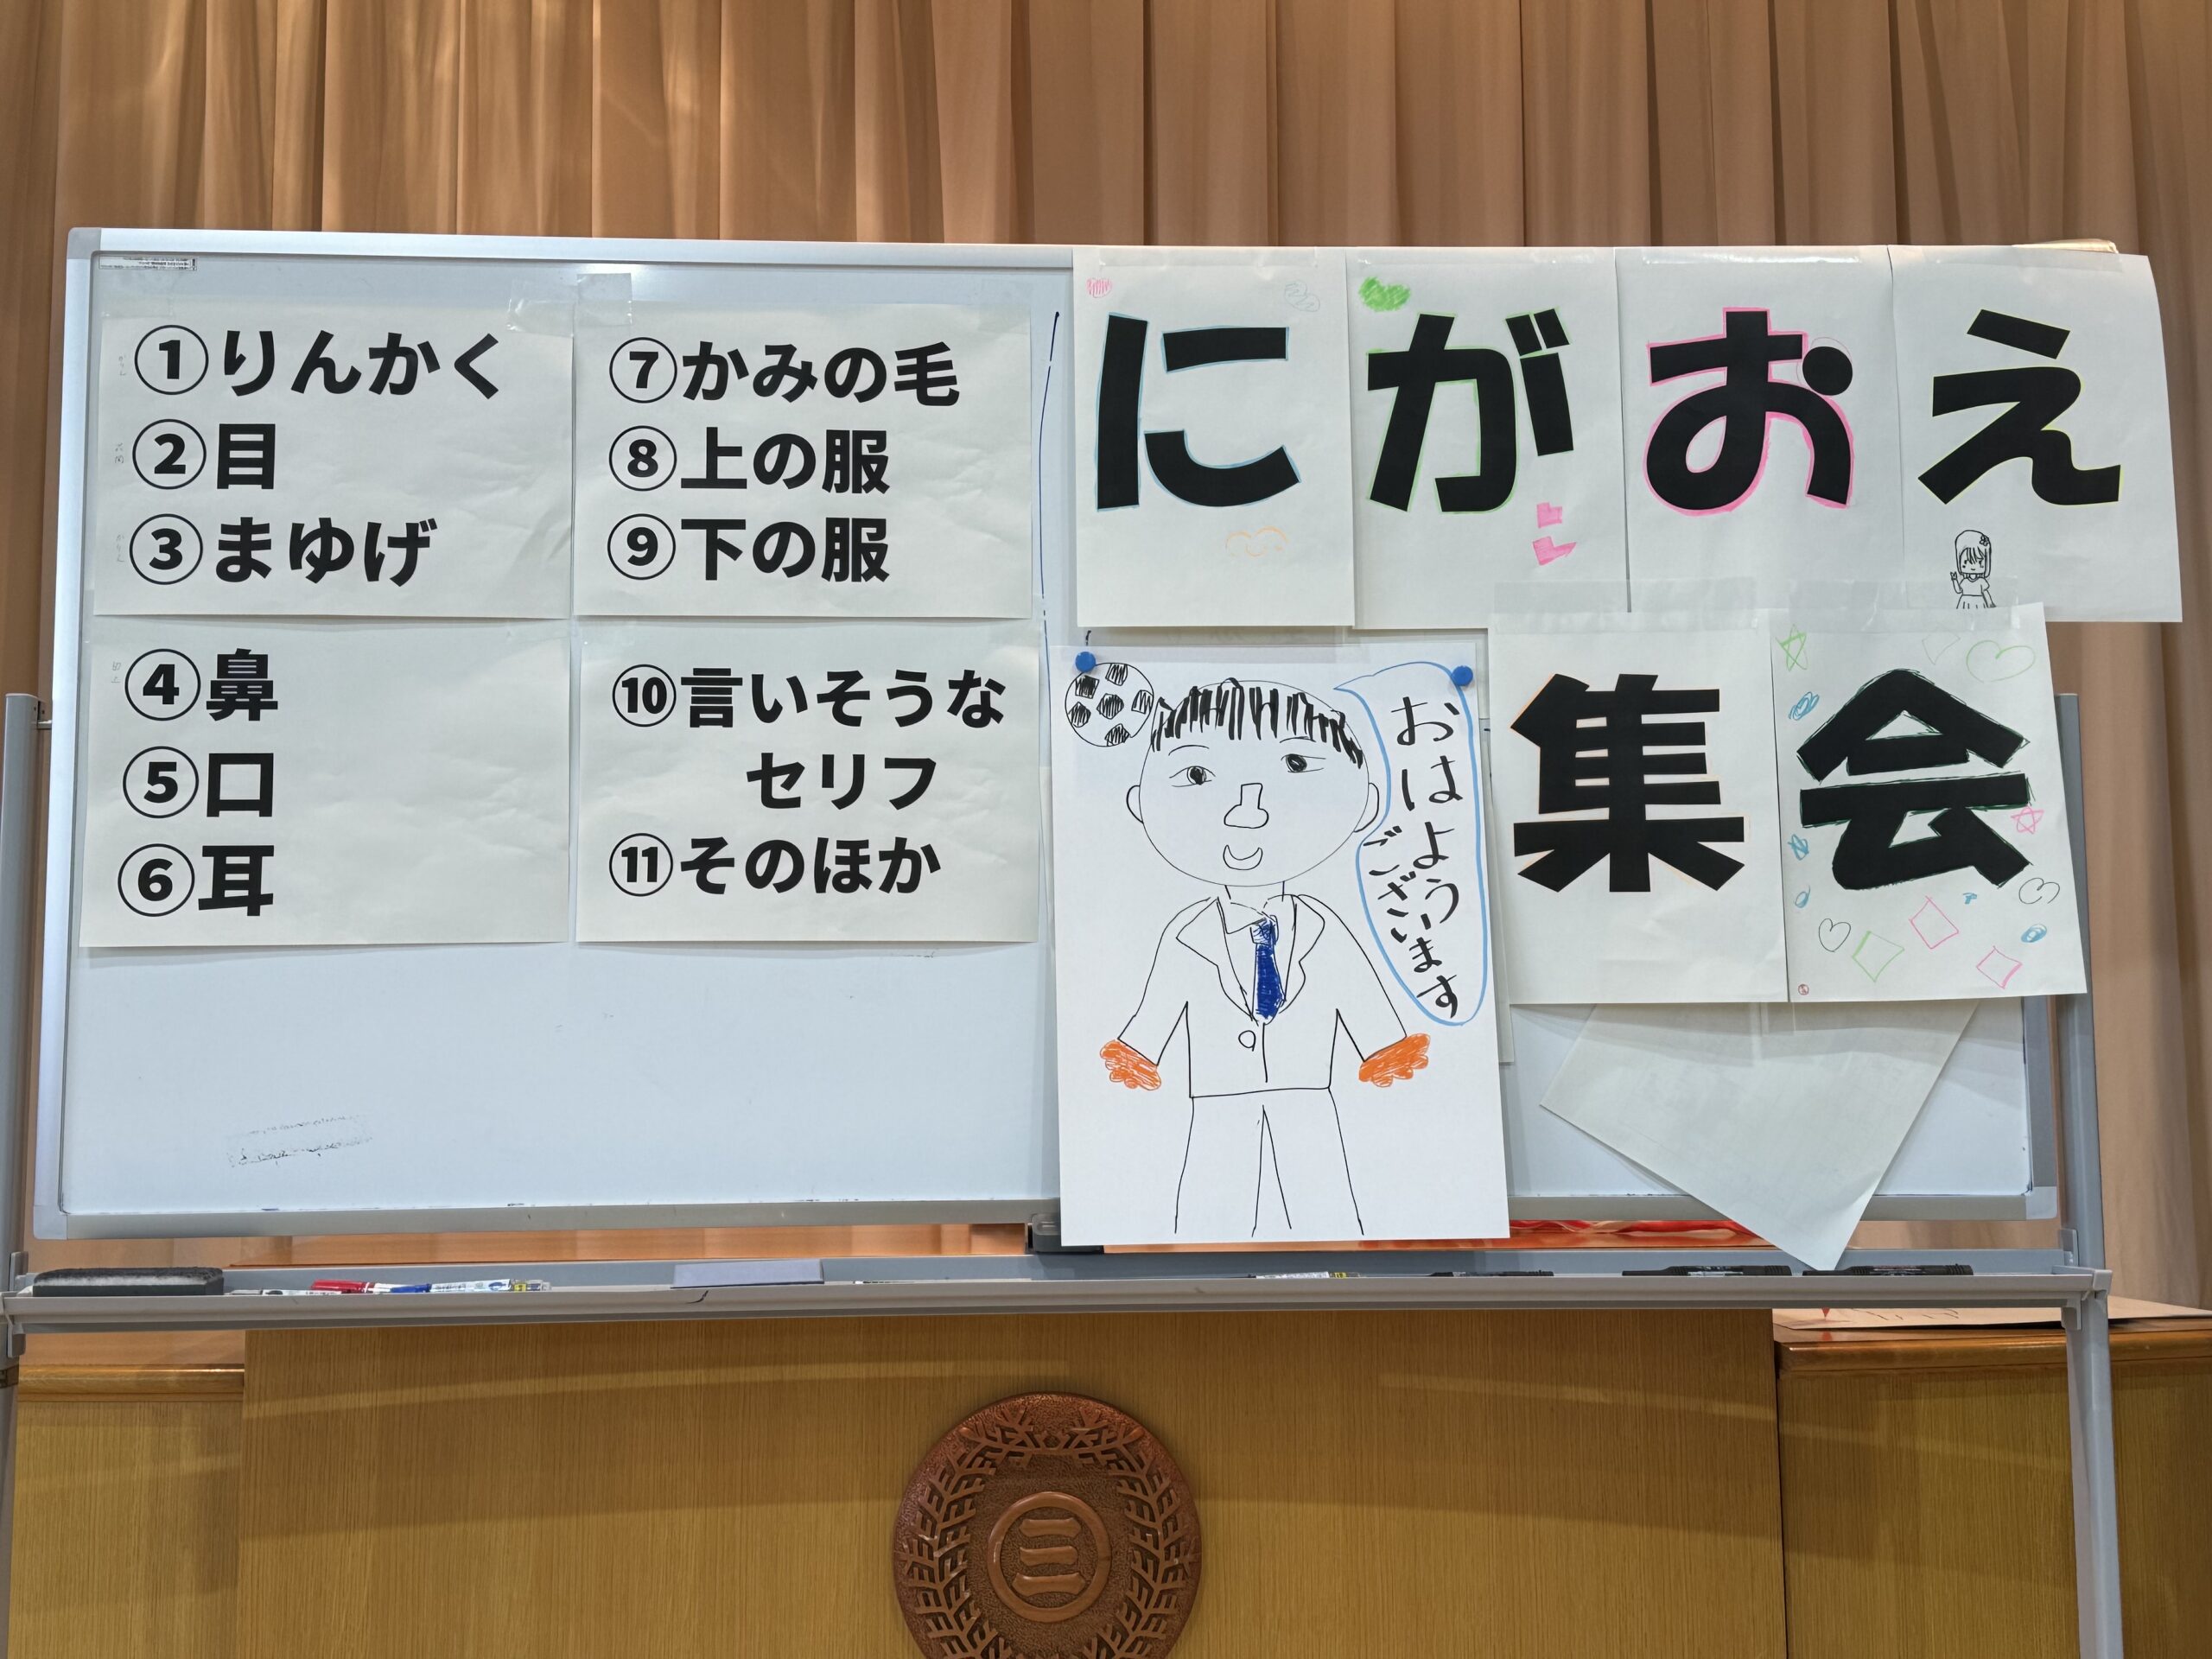 にがおえ
集会
①りんかく
②目
③まゆげ
④鼻
⑤口
⑥耳
⑦かみの毛
⑧上の服
⑨下の服
⑩言いそうな
セリフ
⑪そのほか
おはよう
ございます
三